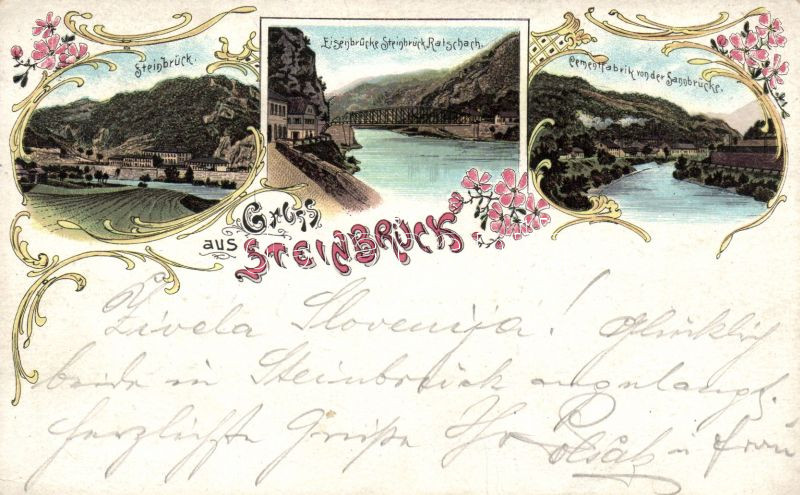 Steinbrück.
Eisenbrücke Steinbrück Ratschach.
Cementfabrik von der Sannbrücke.
Gruss
aus STEINBRÜCK
Živela Slovenija! Glücklich
beide in Steinbrück angelangt.
herzlichste Grüße Ihr
u Frau